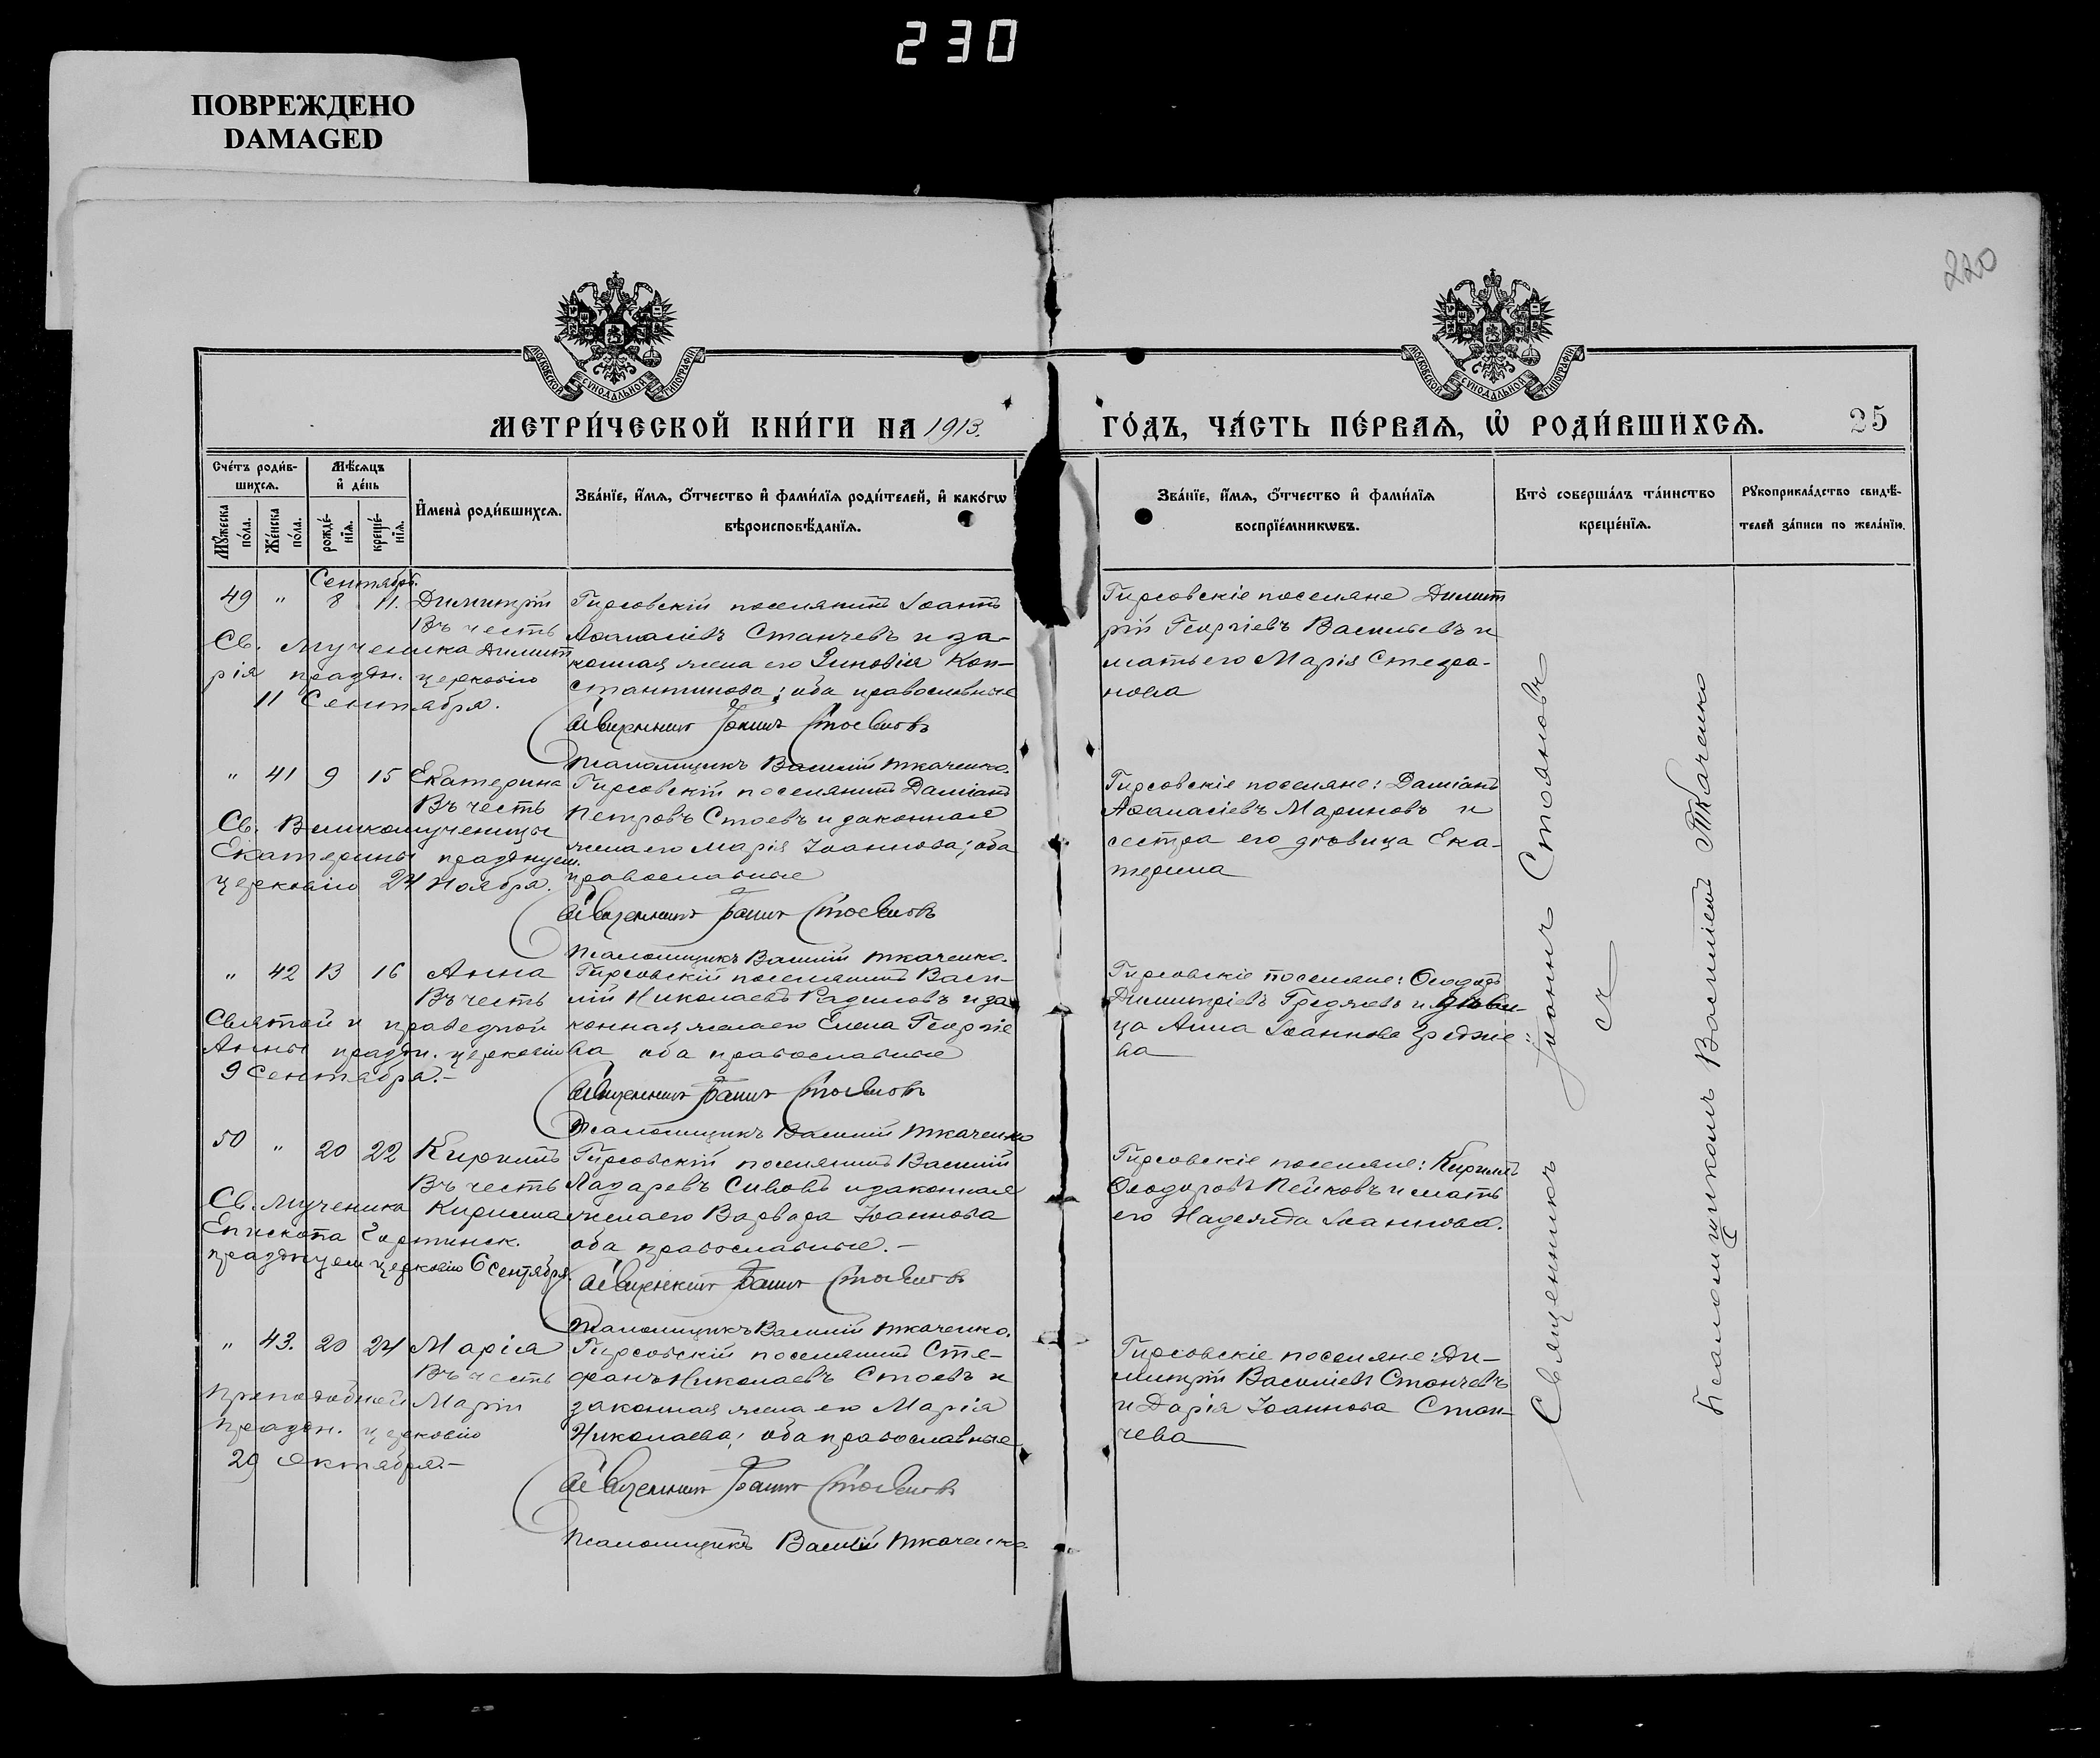 230
ПОВРЕЖДЕНО
DAMAGED
220
МОСКОВСКОЙ СѴНОДАЛЬНОЙ ТИПОГРАФІИ
МОСКОВСКОЙ СѴНОДАЛЬНОЙ ТИПОГРАФІИ
МЕТРИ́ЧЕСКОЙ КНИ́ГИ НА 1913.
ГО́ДЪ, ЧА́СТЬ ПЕ́РВАѦ, Ѡ҆ РОДИ́ВШИХСѦ.
25
Сче́тъ роди́в-
шихсѧ.
Мѣ́сѧцъ
и҆ де́нь
Мꙋ́жеска по́ла.
Же́нска по́ла.
рожде́-нїѧ.
креще́-нїѧ.
И҆мена̀ роди́вшихсѧ.
Зва́нїе, и҆́мѧ, ѻ҆́тчество и҆ фами́лїѧ роди́телей, и҆ како́гѡ
вѣроисповѣ́данїѧ.
Зва́нїе, и҆́мѧ, ѻ҆́тчество и҆ фами́лїѧ
воспрїе́мникѡвъ.
Кто̀ соверша́лъ та́инство
креще́нїѧ.
Рꙋкоприкла́дство свидѣ́-
телей за́писи по жела́нїю.
Сентябрь.
49 " 8 11. Димитрій
Въ честь
Св. Мученика Димит
рія праздн. церковію
11 Сентября.
Гирсовскій поселянинъ Іоаннъ
Аѳанасіевъ Станчевъ и за-
конная жена его Зиновія Кон-
стантинова; оба православные
Священникъ Іоаннъ Стояновъ
Псаломщикъ Василій Ткаченко.
Гирсовскіе поселяне Димит
рій Георгіевъ Васильевъ и
мать его Марія Стефа-
нова
" 41 9 15 Екатерина
Въ честь
Св. Великомученицы
Екатерины празднуем.
церковію 24 Ноября.
Гирсовскій поселянинъ Даміанъ
Петровъ Стоевъ и законная
жена его Марія Іоаннова; оба
православные
Священникъ Іоаннъ Стояновъ
Псаломщикъ Василій Ткаченко.
Гирсовскіе поселяне: Даміанъ
Аѳанасіевъ Мариновъ и
сестра его дѣвица Ека-
терина
" 42 13 16 Анна
Въ честь
Святой и праведной
Анны праздн. церковію
9 Сентября.-
Гирсовскій поселянинъ Васи-
лій Николаевъ Радиловъ и за
конная жена его Елена Георгіе
ва оба православные
Священникъ Іоаннъ Стояновъ
Псаломщикъ Василій Ткаченко
Гирсовскіе поселяне: Ѳеодоръ
Димитріевъ Греджевъ и дѣви-
ца Анна Іоаннова Гредже-
ва
50 " 20 22 Кириллъ
Въ честь
Св. Мученика Кирилла
Епископа Гортинск.
празднуем церковію 6 Сентября.
Гирсовскій поселянинъ Василій
Лазаревъ Сивовъ и законная
жена его Варвара Іоаннова
оба православные.-
Священникъ Іоаннъ Стояновъ
Псаломщикъ Василій Ткаченко.
Гирсовскіе поселяне: Кириллъ
Ѳеодоровъ Пейковъ и мать
его Надежда Іоаннова.
" 43. 20 24 Марія
Въ честь
Преподобной Маріи
праздн. церковію
29 Октября.-
Гирсовскій поселянинъ Сте-
фанъ Николаевъ Стоевъ и
законная жена его Марія
Николаева; оба православные
Священникъ Іоаннъ Стояновъ
Псаломщикъ Василій Ткаченко
Гирсовскіе поселяне: Ди-
митрій Василіевъ Станчевъ
и Дарія Іоаннова Стан-
чева
Священникъ Іоаннъ Стояновъ
съ
Псаломщикомъ Василіемъ Ткаченко